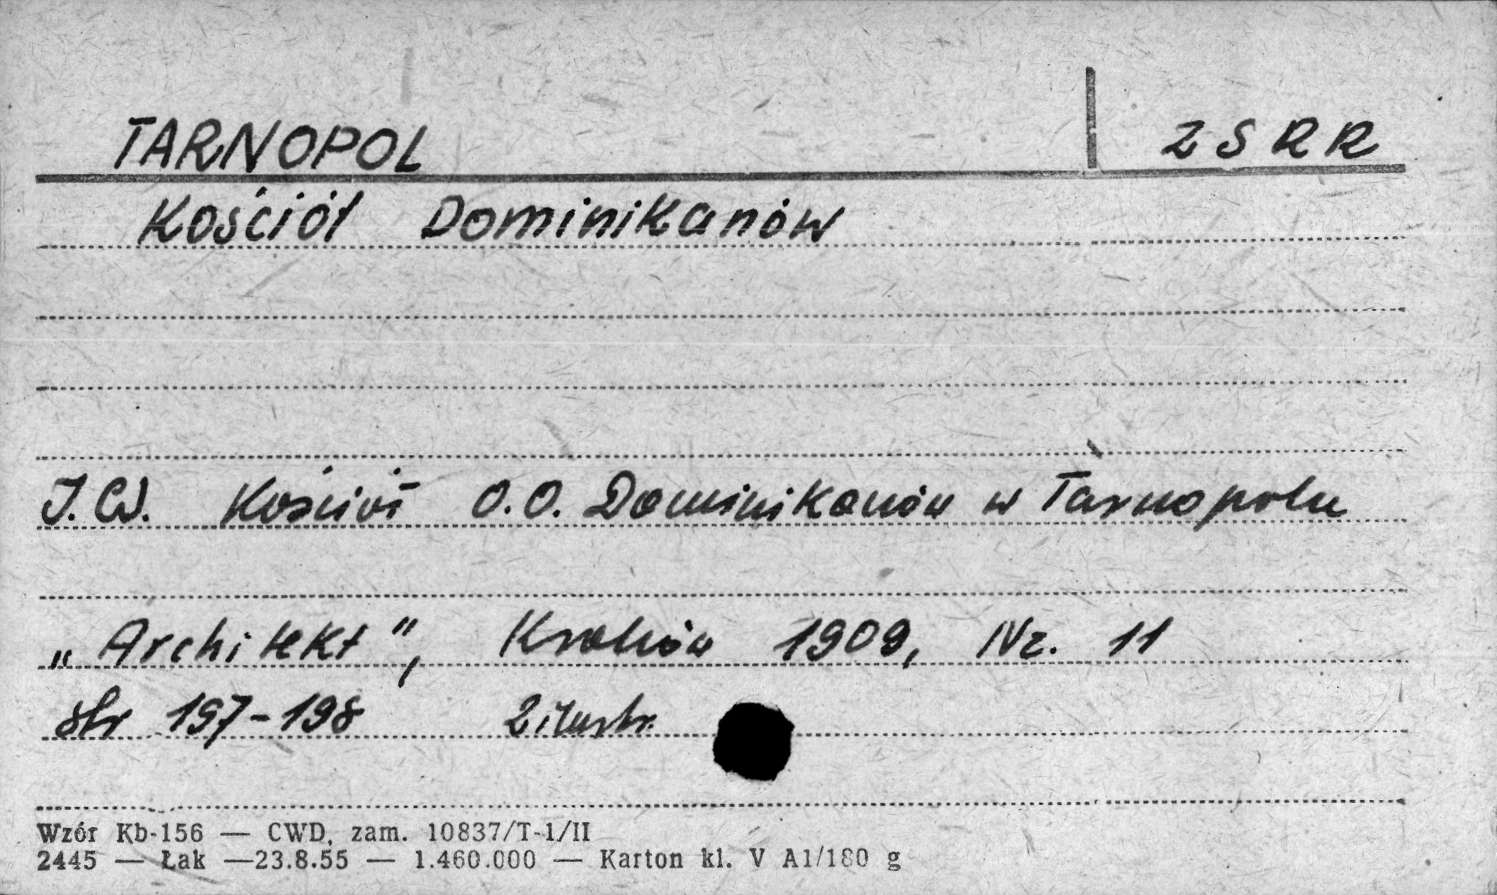 TARNOPOL ZSRR
Kościół Dominikanów
J.W. Kościół O.O. Dominikanów w Tarnopolu
„Architekt”, Kraków 1909, Nr. 11
str 197-198 2 ilustr.
Wzór Kb-156 — CWD, zam. 10837/T-1/II
2445 — Łak —23.8.55 — 1.460.000 — Karton kl. V A1/180 g